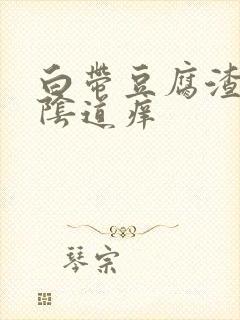 白带豆腐渣
陰道痒
琴宗